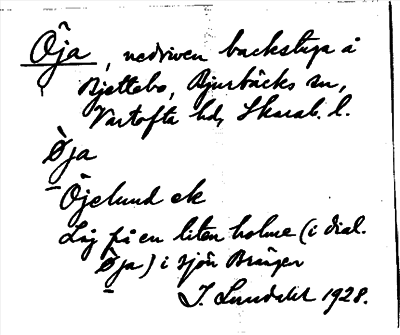 Öja, nedriven backstuga å
Bjettebo, Bjurbäcks sn,
Vartofta hd, Skarab. l.
Öja
Öjelund ek
Låg på en liten holme (i dial.
Öja) i sjön Brånger
J. Lundahl 1928.